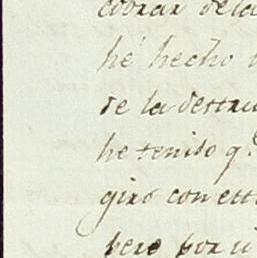 cobrar dela
hé hecho
de la destru
he tenido q.
giro con est
pere por u